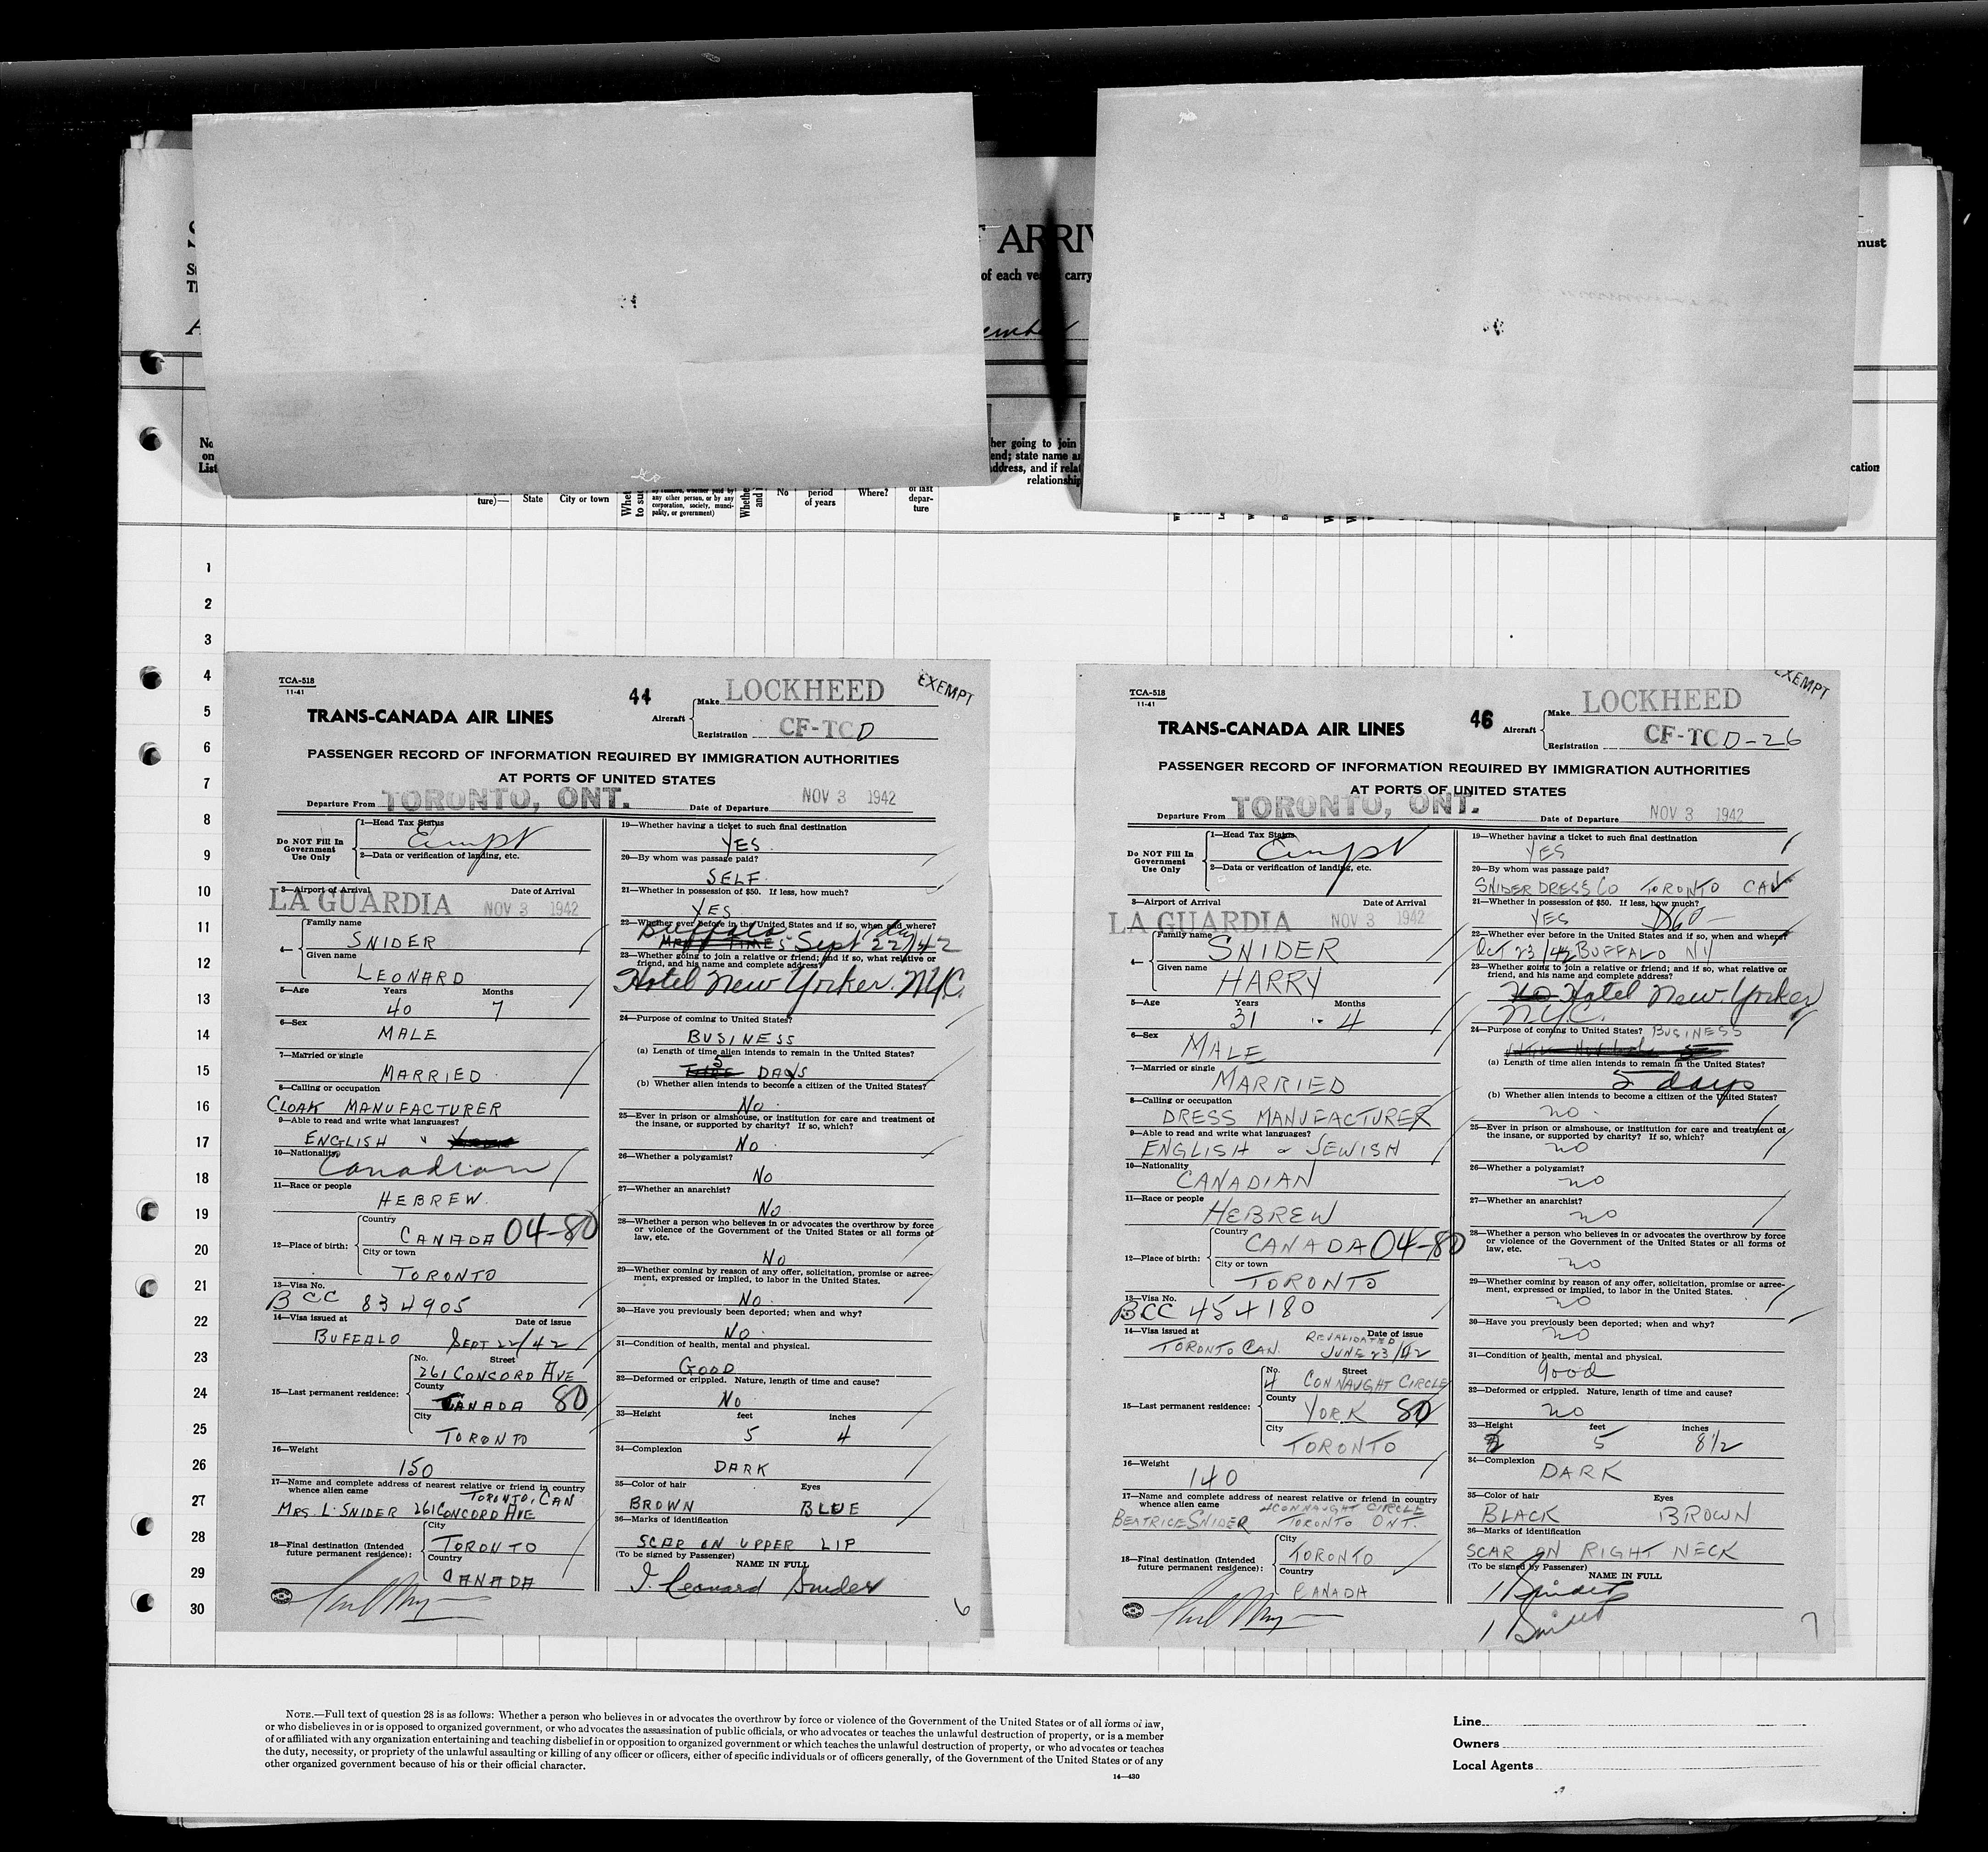 ARRIV
must
of each ve carry
ember
No
on
List
her going to join
end; state name a
ddress, and if relat
relationship
cation
ture)—
State
City or town
any other person, or by any
corporation, society, munci-
pality, or government)
No
period
of years
Where?
of last
depar-
ture
1
2
3
4
5
6
7
8
9
10
11
12
13
14
15
16
17
18
19
20
21
22
23
24
25
26
27
28
29
30
TCA-518
11-41
44
Aircraft
Make LOCKHEED
EXEMPT
TRANS-CANADA AIR LINES
Registration CF-TC D
PASSENGER RECORD OF INFORMATION REQUIRED BY IMMIGRATION AUTHORITIES
AT PORTS OF UNITED STATES
Departure From TORONTO, ONT. Date of Departure NOV 3 1942
Do NOT Fill In
Government
Use Only
1—Head Tax Status
2—Data or verification of landing, etc.
3—Airport of Arrival Date of Arrival
LA GUARDIA NOV 3 1942
4—
Family name
SNIDER
Given name
LEONARD
5—Age Years Months
40 7
6—Sex
MALE
7—Married or single
MARRIED
8—Calling or occupation
CLOAK MANUFACTURER
9—Able to read and write what languages?
ENGLISH
10—Nationality
Canadian
11—Race or people
HEBREW.
12—Place of birth:
Country
CANADA 04-80
City or town
TORONTO
13—Visa No.
BCC 834905
14—Visa issued at Date of issue
BUFFALO SEPT 22/42
15—Last permanent residence:
No. Street
261 CONCORD AVE
County
CANADA 80
City
TORONTO
16—Weight
150
17—Name and complete address of nearest relative or friend in country
whence alien came TORONTO, CAN
MRS. L. SNIDER 261 CONCORD AVE
18—Final destination (Intended
future permanent residence):
City
TORONTO
Country
CANADA
19—Whether having a ticket to such final destination
YES.
20—By whom was passage paid?
SELF.
21—Whether in possession of $50. If less, how much?
YES
22—Whether ever before in the United States and if so, when and where?
Buffalo 1 day
MANY TIMES Sept 22/42
23—Whether going to join a relative or friend; and if so, what relative or
friend, and his name and complete address?
Hotel New Yorker. NYC.
24—Purpose of coming to United States?
BUSINESS
(a) Length of time alien intends to remain in the United States?
5 DAYS
(b) Whether alien intends to become a citizen of the United States?
NO.
25—Ever in prison or almshouse, or institution for care and treatment of
the insane, or supported by charity? If so, which?
NO.
26—Whether a polygamist?
NO
27—Whether an anarchist?
NO.
28—Whether a person who believes in or advocates the overthrow by force
or violence of the Government of the United States or all forms of
law, etc.
NO
29—Whether coming by reason of any offer, solicitation, promise or agree-
ment, expressed or implied, to labor in the United States.
NO.
30—Have you previously been deported; when and why?
NO.
31—Condition of health, mental and physical.
GOOD
32—Deformed or crippled. Nature, length of time and cause?
NO.
33—Height feet inches
5 4
34—Complexion
DARK
35—Color of hair Eyes
BROWN BLUE
36—Marks of identification
SCAR ON UPPER LIP
(To be signed by Passenger)
NAME IN FULL
I. Leonard Snider
6
TCA-518
11-41
46
Aircraft
Make LOCKHEED
EXEMPT
TRANS-CANADA AIR LINES
Registration CF-TC D-26
PASSENGER RECORD OF INFORMATION REQUIRED BY IMMIGRATION AUTHORITIES
AT PORTS OF UNITED STATES
Departure From TORONTO, ONT. Date of Departure NOV 3 1942
Do NOT Fill In
Government
Use Only
1—Head Tax Status
2—Data or verification of landing, etc.
3—Airport of Arrival Date of Arrival
LA GUARDIA NOV 3 1942
4—
Family name
SNIDER
Given name
HARRY
5—Age Years Months
31 4
6—Sex
MALE
7—Married or single
MARRIED
8—Calling or occupation
DRESS MANUFACTURER
9—Able to read and write what languages?
ENGLISH & JEWISH
10—Nationality
CANADIAN
11—Race or people
HEBREW
12—Place of birth:
Country
CANADA 04-80
City or town
TORONTO
13—Visa No.
BCC 454180
14—Visa issued at Date of issue
REVALIDATED
TORONTO CAN. JUNE 23/42
15—Last permanent residence:
No. Street
4 CONNAUGHT CIRCLE
County
YORK 80
City
TORONTO
16—Weight
140
17—Name and complete address of nearest relative or friend in country
whence alien came 4 CONNAUGHT CIRCLE
BEATRICE SNIDER TORONTO ONT.
18—Final destination (Intended
future permanent residence):
City
TORONTO
Country
CANADA
19—Whether having a ticket to such final destination
YES
20—By whom was passage paid?
SNIDER DRESS CO TORONTO CAN
21—Whether in possession of $50. If less, how much?
YES $60—
22—Whether ever before in the United States and if so, when and where?
Oct 23/42 BUFFALO NY
23—Whether going to join a relative or friend; and if so, what relative or
friend, and his name and complete address?
No Hotel New Yorker
N.Y.C.
24—Purpose of coming to United States? BUSINESS
(a) Length of time alien intends to remain in the United States?
5 days
(b) Whether alien intends to become a citizen of the United States?
no.
25—Ever in prison or almshouse, or institution for care and treatment of
the insane, or supported by charity? If so, which?
no
26—Whether a polygamist?
no
27—Whether an anarchist?
no
28—Whether a person who believes in or advocates the overthrow by force
or violence of the Government of the United States or all forms of
law, etc.
no
29—Whether coming by reason of any offer, solicitation, promise or agree-
ment, expressed or implied, to labor in the United States.
no
30—Have you previously been deported; when and why?
no
31—Condition of health, mental and physical.
good
32—Deformed or crippled. Nature, length of time and cause?
no
33—Height feet inches
5 8 1/2
34—Complexion
DARK
35—Color of hair Eyes
BLACK BROWN
36—Marks of identification
SCAR ON RIGHT NECK
(To be signed by Passenger)
NAME IN FULL
H Snider
H Snider
7
NOTE.—Full text of question 28 is as follows: Whether a person who believes in or advocates the overthrow by force or violence of the Government of the United States or of all forms of law,
or who disbelieves in or is opposed to organized government, or who advocates the assassination of public officials, or who advocates or teaches the unlawful destruction of property, or is a member
of or affiliated with any organization entertaining and teaching disbelief in or opposition to organized government or which teaches the unlawful destruction of property, or who advocates or teaches
the duty, necessity, or propriety of the unlawful assaulting or killing of any officer or officers, either of specific individuals or of officers generally, of the Government of the United States or of any
other organized government because of his or their official character.
14—430
Line
Owners
Local Agents